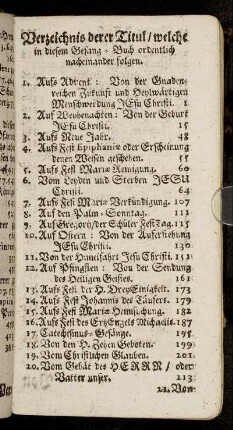 Verzeichnis derer Titul/welche
in diesem Gesang-Buch ordentlich
nacheinander folgen.
1. Aufs Advent: Von der Gnaden-
reichen Zukunft und Heylwärtigen
Menschwerdung JEsu Christi. 1
2. Auf Weyhenachten: Von der Geburt
JEsu Christi. 15
3. Aufs Neue Jahr. 48
4. Aufs Fest Epiphaniæ oder Erscheinung
denen Weisen geschehen. 55
5. Aufs Fest Mariæ Reinigung. 60
6. Vom Leyden und Sterben JESU
Christi. 64
7. Aufs Fest Mariæ Verkündigung. 107
8. Auf den Palm-Sonntag. 111
9. Auf Gregorij/der Schüler Fest Tag. 115
10. Auf Ostern: Von der Auferstehung
JEsu Christi. 130
11. Von der Himelfahrt Jesu Christi. 151
12. Auf Pfingsten: Von der Sendung
des Heiligen Geistes. 161
13. Aufs Fest der H. DreyEinigkeit. 173
14. Aufs Fest Johannis des Täufers. 179
15. Aufs Fest Mariæ Heimsuchung. 182
16. Aufs Fest des ErtzEngels Michaelis. 187
17. Catechismus-Gesänge. 195
18. Von den H. Zehen Geboten. 199
19. Vom Christlichen Glauben. 201
20. Vom Gebät des HERRN/ oder
Vatter unser. 213
21. Von